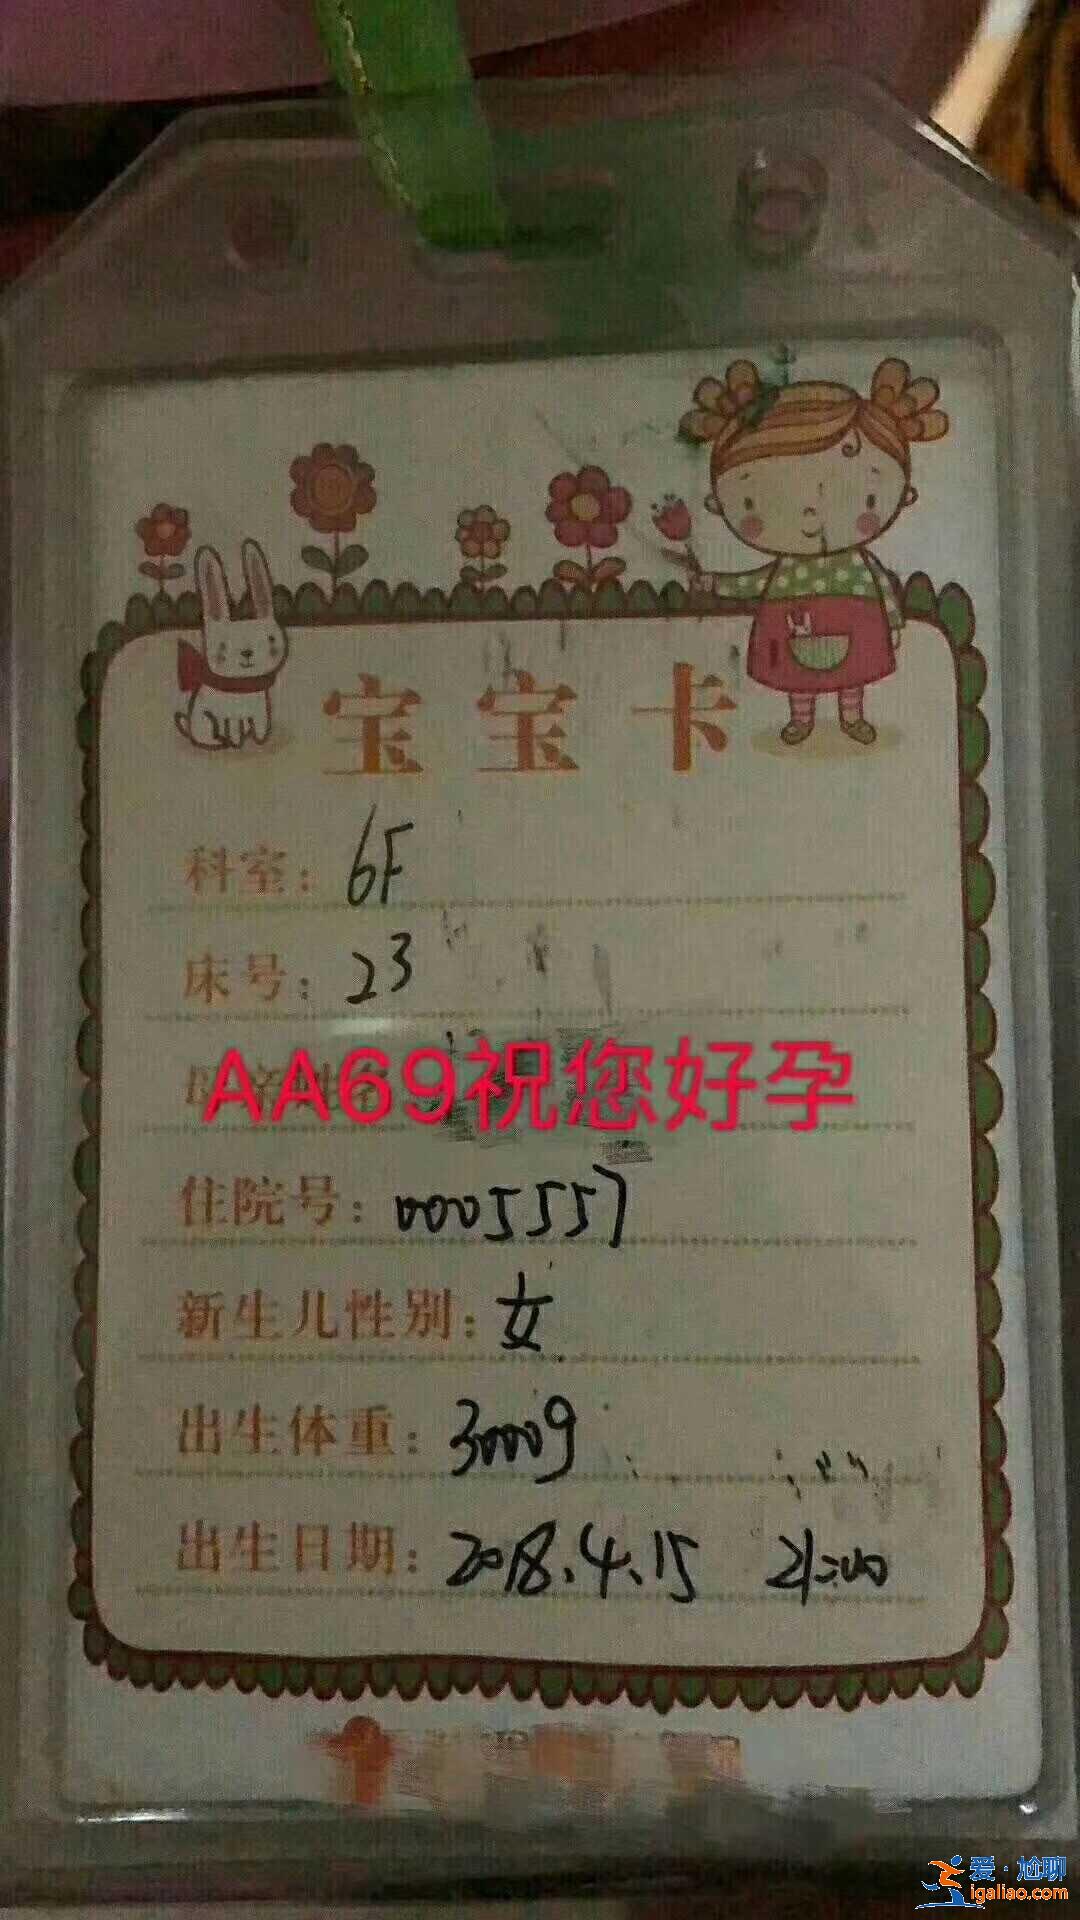 宝宝卡
科室：6F
床号：23
AA69祝您好孕
住院号：0005557
新生儿性别：女
出生体重：3000g
出生日期：2018.4.15 21:00
爱·尬聊
igaliao.com